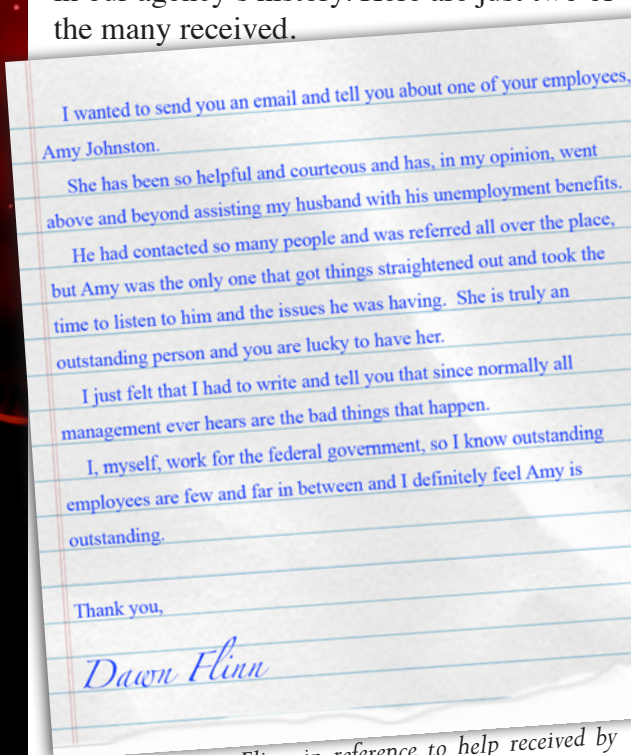 in our agency's history. Here are just two of
the many received.
I wanted to send you an email and tell you about one of your employees,
Amy Johnston.
She has been so helpful and courteous and has, in my opinion, went
above and beyond assisting my husband with his unemployment benefits.
He had contacted so many people and was referred all over the place,
but Amy was the only one that got things straightened out and took the
time to listen to him and the issues he was having.  She is truly an
outstanding person and you are lucky to have her.
I just felt that I had to write and tell you that since normally all
management ever hears are the bad things that happen.
I, myself, work for the federal government, so I know outstanding
employees are few and far in between and I definitely feel Amy is
outstanding.
Thank you,
Dawn Flinn
in reference to help received by